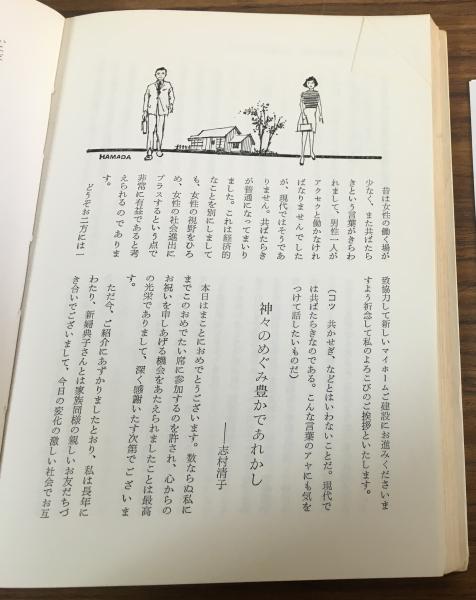 HAMADA
昔は女性の働く場が
少なく、また共ばたら
きという言葉がきらわ
れまして、男性一人が
アクセクと働かなけれ
ばなりませんでした
が、現代ではそうであ
りません。共ばたらき
が普通になってまいり
ました。これは経済的
なことを別にしまして
も、女性の視野をひろ
め、女性の社会進出に
プラスするという点で
非常に有益であると考
えられるのでありま
す。
どうぞお二方には一
致協力して新しいマイホームご建設にお進みくださいま
すよう祈念して私のよろこびのご挨拶といたします。
(コツ 共かせぎ、などとはいわないことだ。現代で
は共ばたらきなのである。こんな言葉のアヤにも気を
つけて話したいものだ)
神々のめぐみ豊かであれかし
──志村清子
本日はまことにおめでとうございます。数ならぬ私に
までこのおめでたい席に参加するのを許され、心からの
お祝いを申しあげる機会をあたえられましたことは最高
の光栄でありまして、深く感謝いたす次第でございま
す。
ただ今、ご紹介にあずかりましたとおり、私は長年に
わたり、新婦典子さんとは家族同様の親しいお友だちづ
き合いでございまして、今日の変化の激しい社会でお互